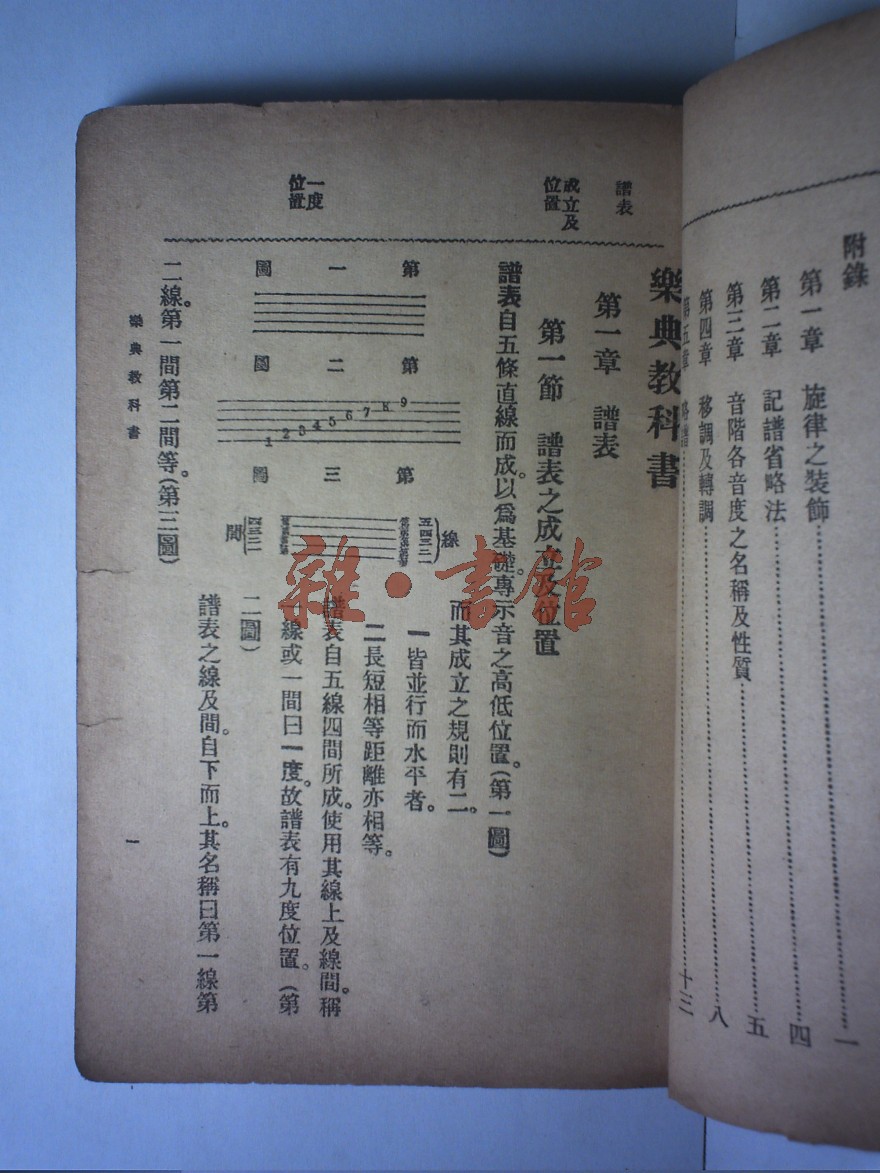 附錄
第一章 旋律之裝飾……一
第二章 記譜省略法……四
第三章 音階各音度之名稱及性質……五
第四章 移調及轉調……八
第五章 略譜……十三
樂典教科書
譜表
第一章 譜表
成立及
位置
第一節 譜表之成立及位置
譜表自五條直線而成。以爲基礎。專示音之高低位置。(第一圖)
而其成立之規則有二。
一皆並行而水平者。
二長短相等距離亦相等。
第一圖
第二圖
1 2 3 4 5 6 7 8 9
第三圖
線
五四三二一
間
四三二一
一度
位置
譜表自五線四間所成。使用其線上及線間。稱
一線或一間曰一度。故譜表有九度位置。(第
二圖)
譜表之線及間。自下而上。其名稱曰第一線第
二線。第一間第二間等。(第三圖)
樂典教科書
一
雜·書館